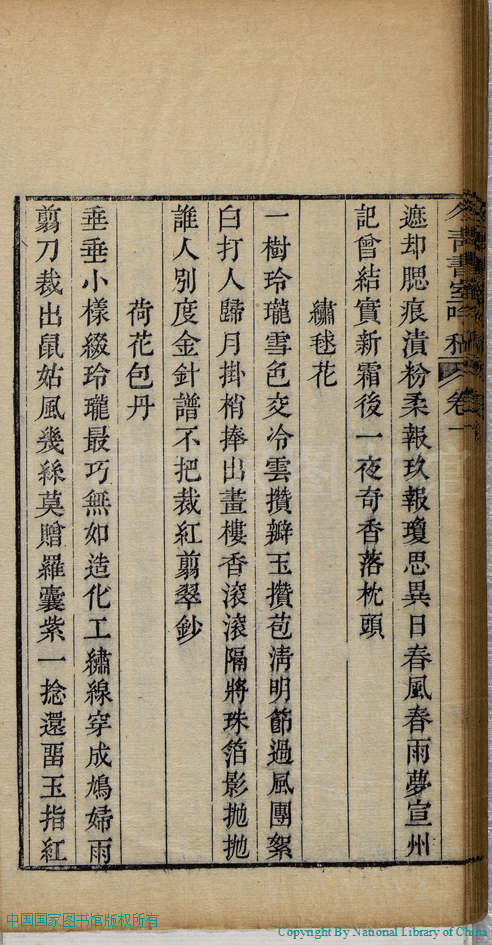 遮却腮痕漬粉柔報玖報瓊思異日春風春雨夢宣州
記曾結實新霜後一夜奇香落枕頭
繡毬花
一樹玲瓏雪色交冷雲攢瓣玉攢苞淸明節過風團絮
白打人歸月掛梢捧出畫樓香滾滾隔將珠箔影拋拋
誰人別度金針譜不把裁紅翦翠鈔
荷花包丹
垂垂小樣綴玲瓏最巧無如造化工繡線穿成鳩婦雨
翦刀裁出鼠姑風幾絲莫贈羅囊紫一捻還畱玉指紅
中国国家图书馆版权所有
Copyright By National Library of China